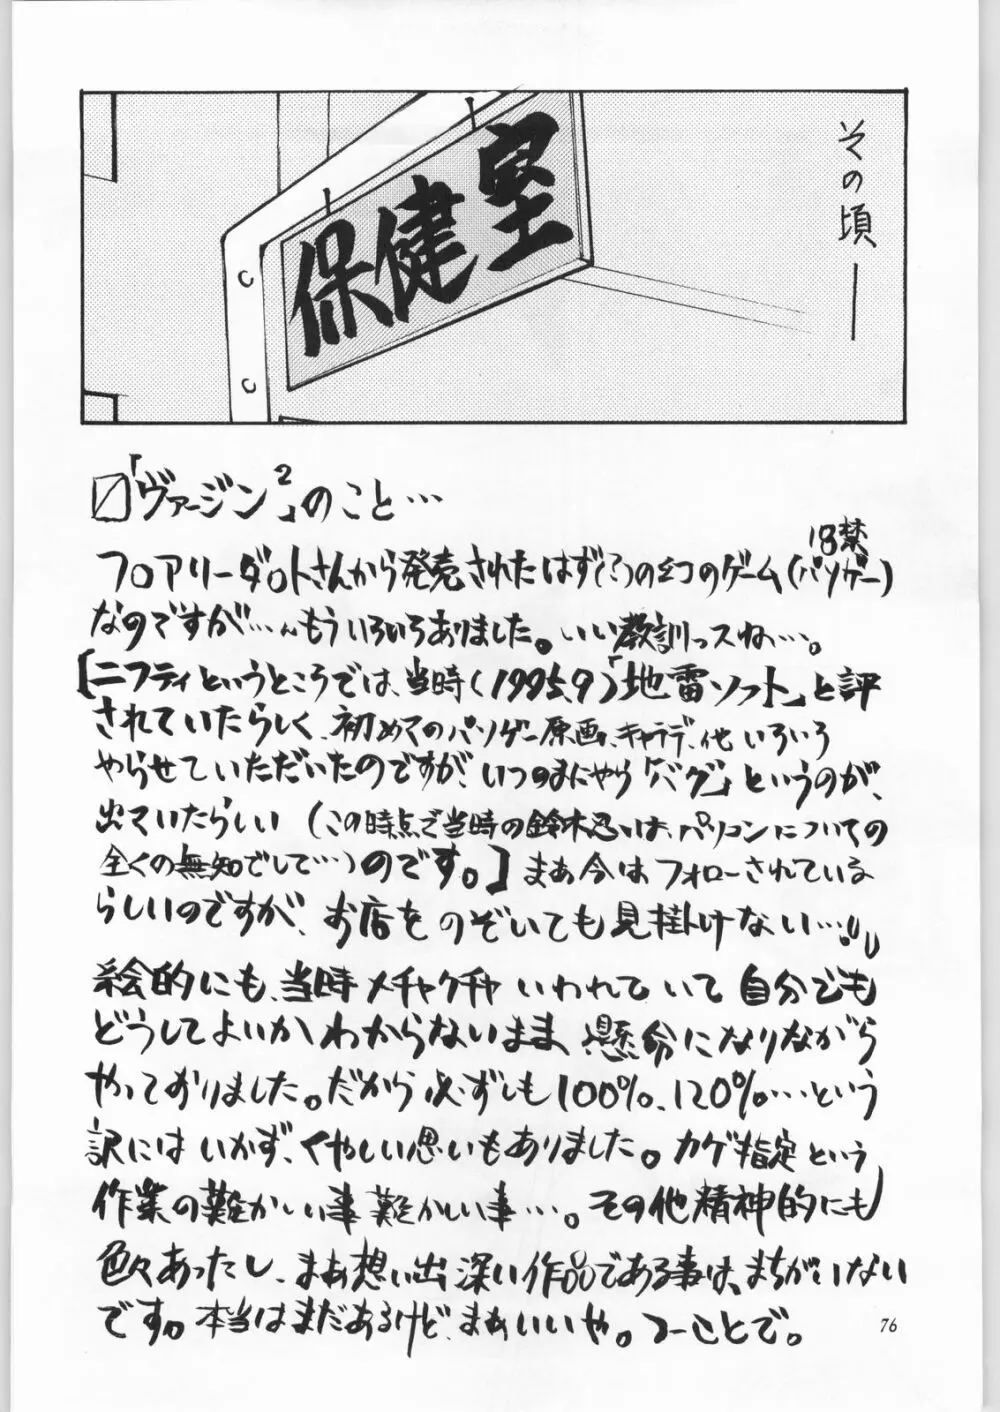 その頃―
保健室
「ヴァージン²」のこと…
フロアリーダットさんから発売されたはず(?)の幻のゲーム(パソゲー)
18禁
なのですが…。もういろいろありました。いい教訓っスね…。
[ニフティというところでは、当時(1995.9)「地雷ソフト」と評
されていたらしく、初めてのパソゲー原画、キャラデ、他いろいろ
やらせていただいたのですが、いつのまにやら「バグ」というのが、
出ていたらしい(この時点で当時の鈴木忍は、パソコンについての
全くの無知でして…)のです。]まあ今はフォローされている
らしいのですが、お店をのぞいても見掛けない…。
絵的にも、当時メチャクチャいわれていて自分でも
どうしてよいかわからないまま、懸命になりながら
やっておりました。だから必ずしも100%、120%…という
訳にはいかず、くやしい思いもありました。カゲ指定という
作業の難かしい事難かしい事…。その他精神的にも
色々あったし、まあ想い出深い作品である事は、まちがいない
です。本当はまだあるけど、まぁいいや。つーことで。
76